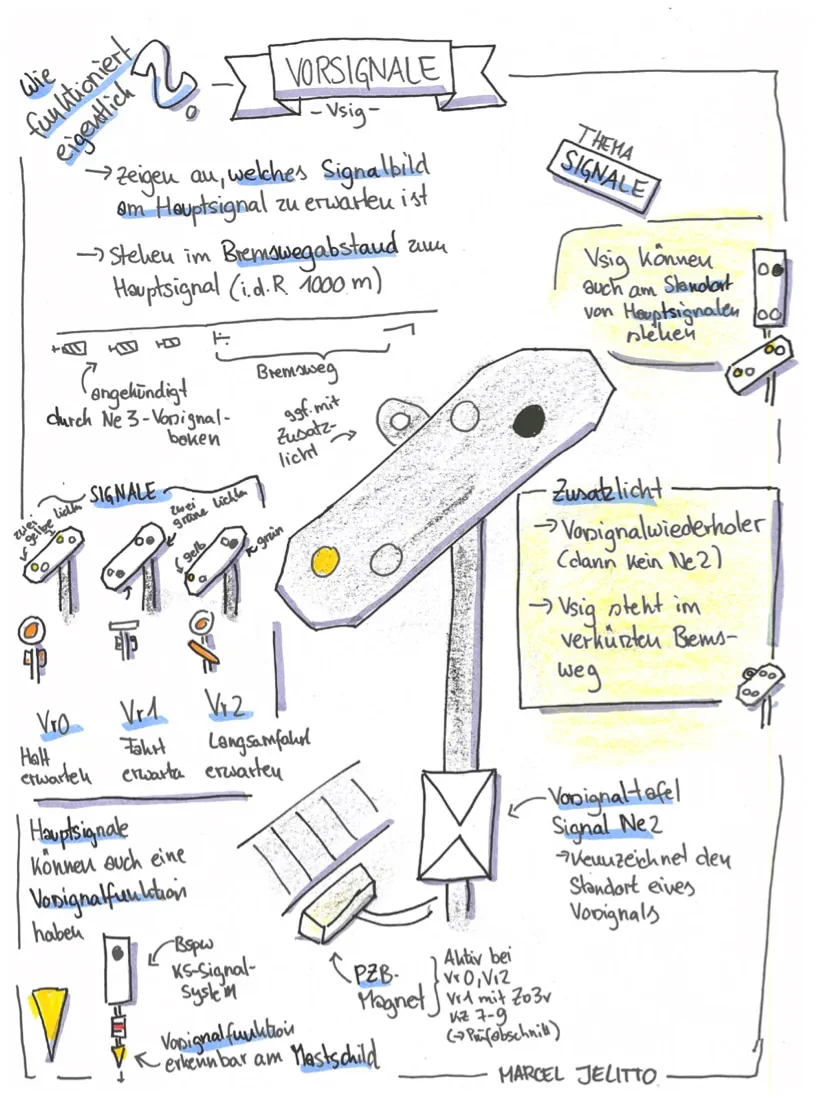 Wie
funktioniert
eigentlich
?
VORSIGNALE
- Vsig -
THEMA
SIGNALE
→ zeigen an, welches Signalbild
am Hauptsignal zu erwarten ist
→ Stehen im Bremswegabstand zum
Hauptsignal (i.d.R. 1000 m)
Vsig können
auch am Standort
von Hauptsignalen
stehen
Bremsweg
angekündigt
durch Ne 3-Vorsignal-
baken
ggf. mit
Zusatz-
licht
SIGNALE
zwei
gelbe Lichter
zwei
grüne Lichter
gelb
grün
Vr0
Halt
erwarten
Vr1
Fahrt
erwarten
Vr2
Langsamfahrt
erwarten
Zusatzlicht
→ Vorsignalwiederholer
(dann kein Ne2)
→ Vsig steht im
verkürzten Brems-
weg
Hauptsignale
können auch eine
Vorsignalfunktion
haben
Bspw
KS-Signal-
System
Vorsignalfunktion
erkennbar am Mastschild
Vorsignaltafel
Signal Ne2
→ Kennzeichnet den
Standort eines
Vorsignals
PZB-
Magnet
Aktiv bei
Vr0, Vr2
Vr1 mit Zs3v
Kz 7-9
(→ Prüfabschnitt)
MARCEL JELITTO